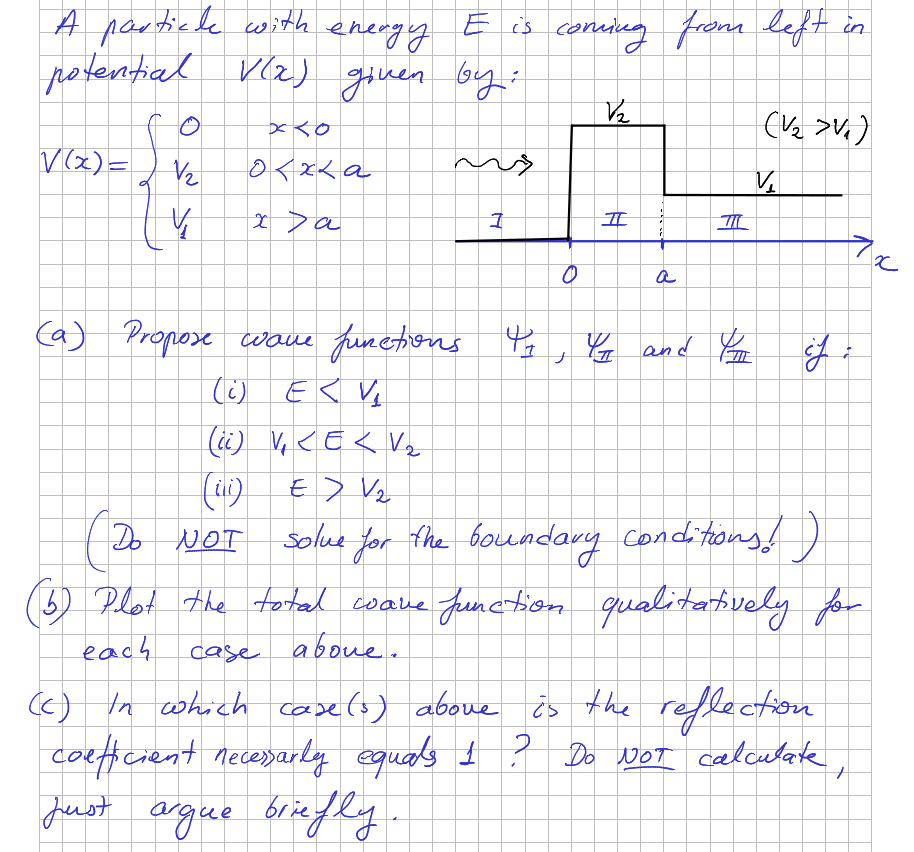 A particle with energy E is coming from left in
potential V(x) given by:
V(x) = { 0 x<0
V₂ 0<x<a
V₁ x>a
V₂
(V₂ >V₁)
V₁
I II III
0 a x
(a) Propose wave functions Ψ_I, Ψ_II and Ψ_III if :
(i) E < V₁
(ii) V₁ < E < V₂
(iii) E > V₂
(Do NOT solve for the boundary conditions!)
(b) Plot the total wave function qualitatively for
each case above.
(c) In which case(s) above is the reflection
coefficient necessarly equals 1 ? Do NOT calculate,
just argue briefly.